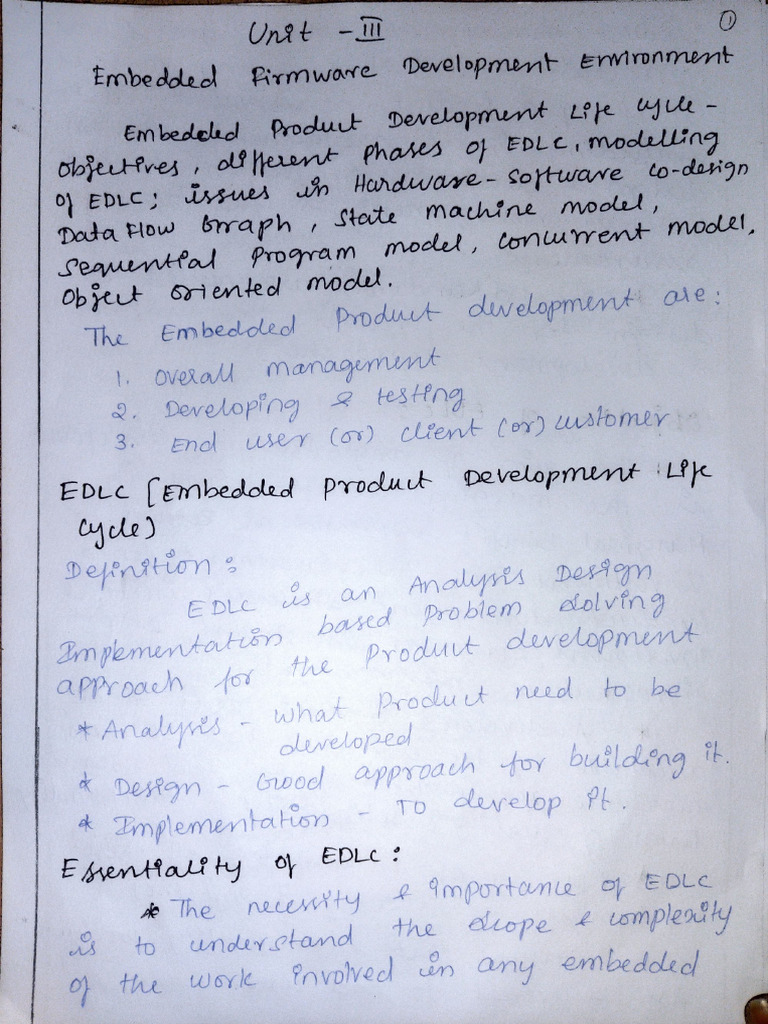 ①
Unit - III
Embedded Firmware Development Environment
Embedded Product Development Life cycle -
objectives, different phases of EDLC, modelling
of EDLC; issues in Hardware-software co-design
Data Flow Graph, state machine model,
sequential Program model, concurrent model,
object oriented model.
The Embedded Product development are:
1. overall management
2. Developing & testing
3. End user (or) client (or) customer
EDLC [Embedded product Development Life
cycle)
Definition:
EDLC is an Analysis Design
Implementation based Problem solving
approach for the product development
* Analysis - what product need to be
developed
* Design - Good approach for building it.
* Implementation - To develop it.
Essentiality of EDLC:
* The necessity & importance of EDLC
is to understand the scope & complexity
of the work involved in any embedded